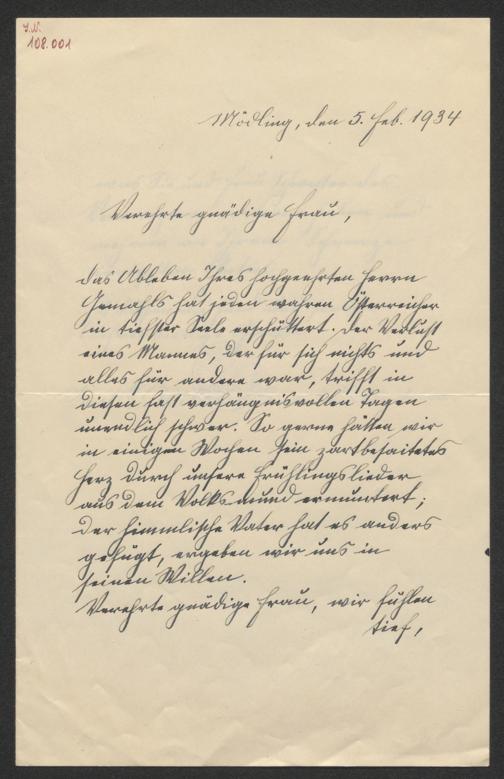 I.N.
108.001
Mödling, den 5. Feb. 1934
Verehrte gnädige Frau,
das Ableben Ihres hochgeehrten Herrn
Gemahls hat jeden wahren Österreicher
in tiefster Seele erschüttert. Der Verlust
eines Mannes, der für sich nichts und
alles für andere war, trifft in
diesen fast verhängnisvollen Tagen
unendlich schwer. So gerne hätten wir
in einigen Wochen sein zartbesaitetes
Herz durch unsere Frühlingslieder
aus dem Volksmund ermuntert;
der himmlische Vater hat es anders
gefügt, ergeben wir uns in
seinen Willen.
Verehrte gnädige Frau, wir fühlen
tief,